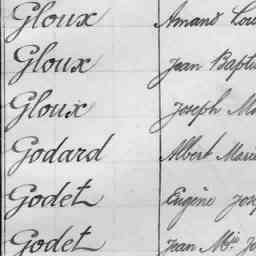 Gloux Amand Lou
Gloux Jean Bapti
Gloux Joseph Ma
Godard Albert Marie
Godet Eugène Jose
Godet Jean Mie Jo